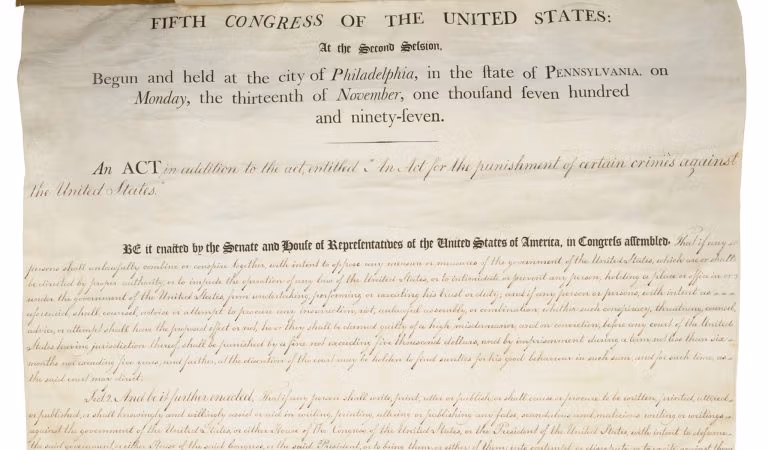 FIFTH CONGRESS OF THE UNITED STATES:
At the Second Session,
Begun and held at the city of Philadelphia, in the ſtate of PENNSYLVANIA, on
Monday, the thirteenth of November, one thouſand ſeven hundred
and ninety-ſeven.
An ACT in addition to the act, entitled "An Act for the punishment of certain crimes against
the United States."
BE it enacted by the Senate and House of Representatives of the United States of America, in Congress assembled. That if any
persons shall unlawfully combine or conspire together, with intent to oppose any measure or measures of the government of the United States, which are or shall
be directed by proper authority, or to impede the operation of any law of the United States, or to intimidate or prevent any person, holding a place or office in or
under the government of the United States, from undertaking, performing or executing his trust or duty; and if any person or persons, with intent as
aforesaid, shall counsel, advise or attempt to procure any insurrection, riot, unlawful assembly, or combination, whether such conspiracy, threatening, counsel,
advice, or attempt shall have the proposed effect or not, he or they shall be deemed guilty of a high misdemeanor, and on conviction, before any court of the United
States having jurisdiction thereof, shall be punished by a fine not exceeding five thousand dollars, and by imprisonment during a term not less than six
months nor exceeding five years; and further, at the discretion of the court may be holden to find sureties for his good behaviour in such sum, and for such time, as
the said court may direct.
Sect. 2. And be it further enacted, That if any person shall write, print, utter or publish, or shall cause or procure to be written, printed, uttered
or published, or shall knowingly and willingly assist or aid in writing, printing, uttering or publishing any false, scandalous and malicious writing or writings
against the government of the United States, or either House of the Congress of the United States, or the President of the United States, with intent to defame
the said government, or either House of the said Congress, or the said President, or to bring them, or either of them, into contempt or disrepute; or to excite against them